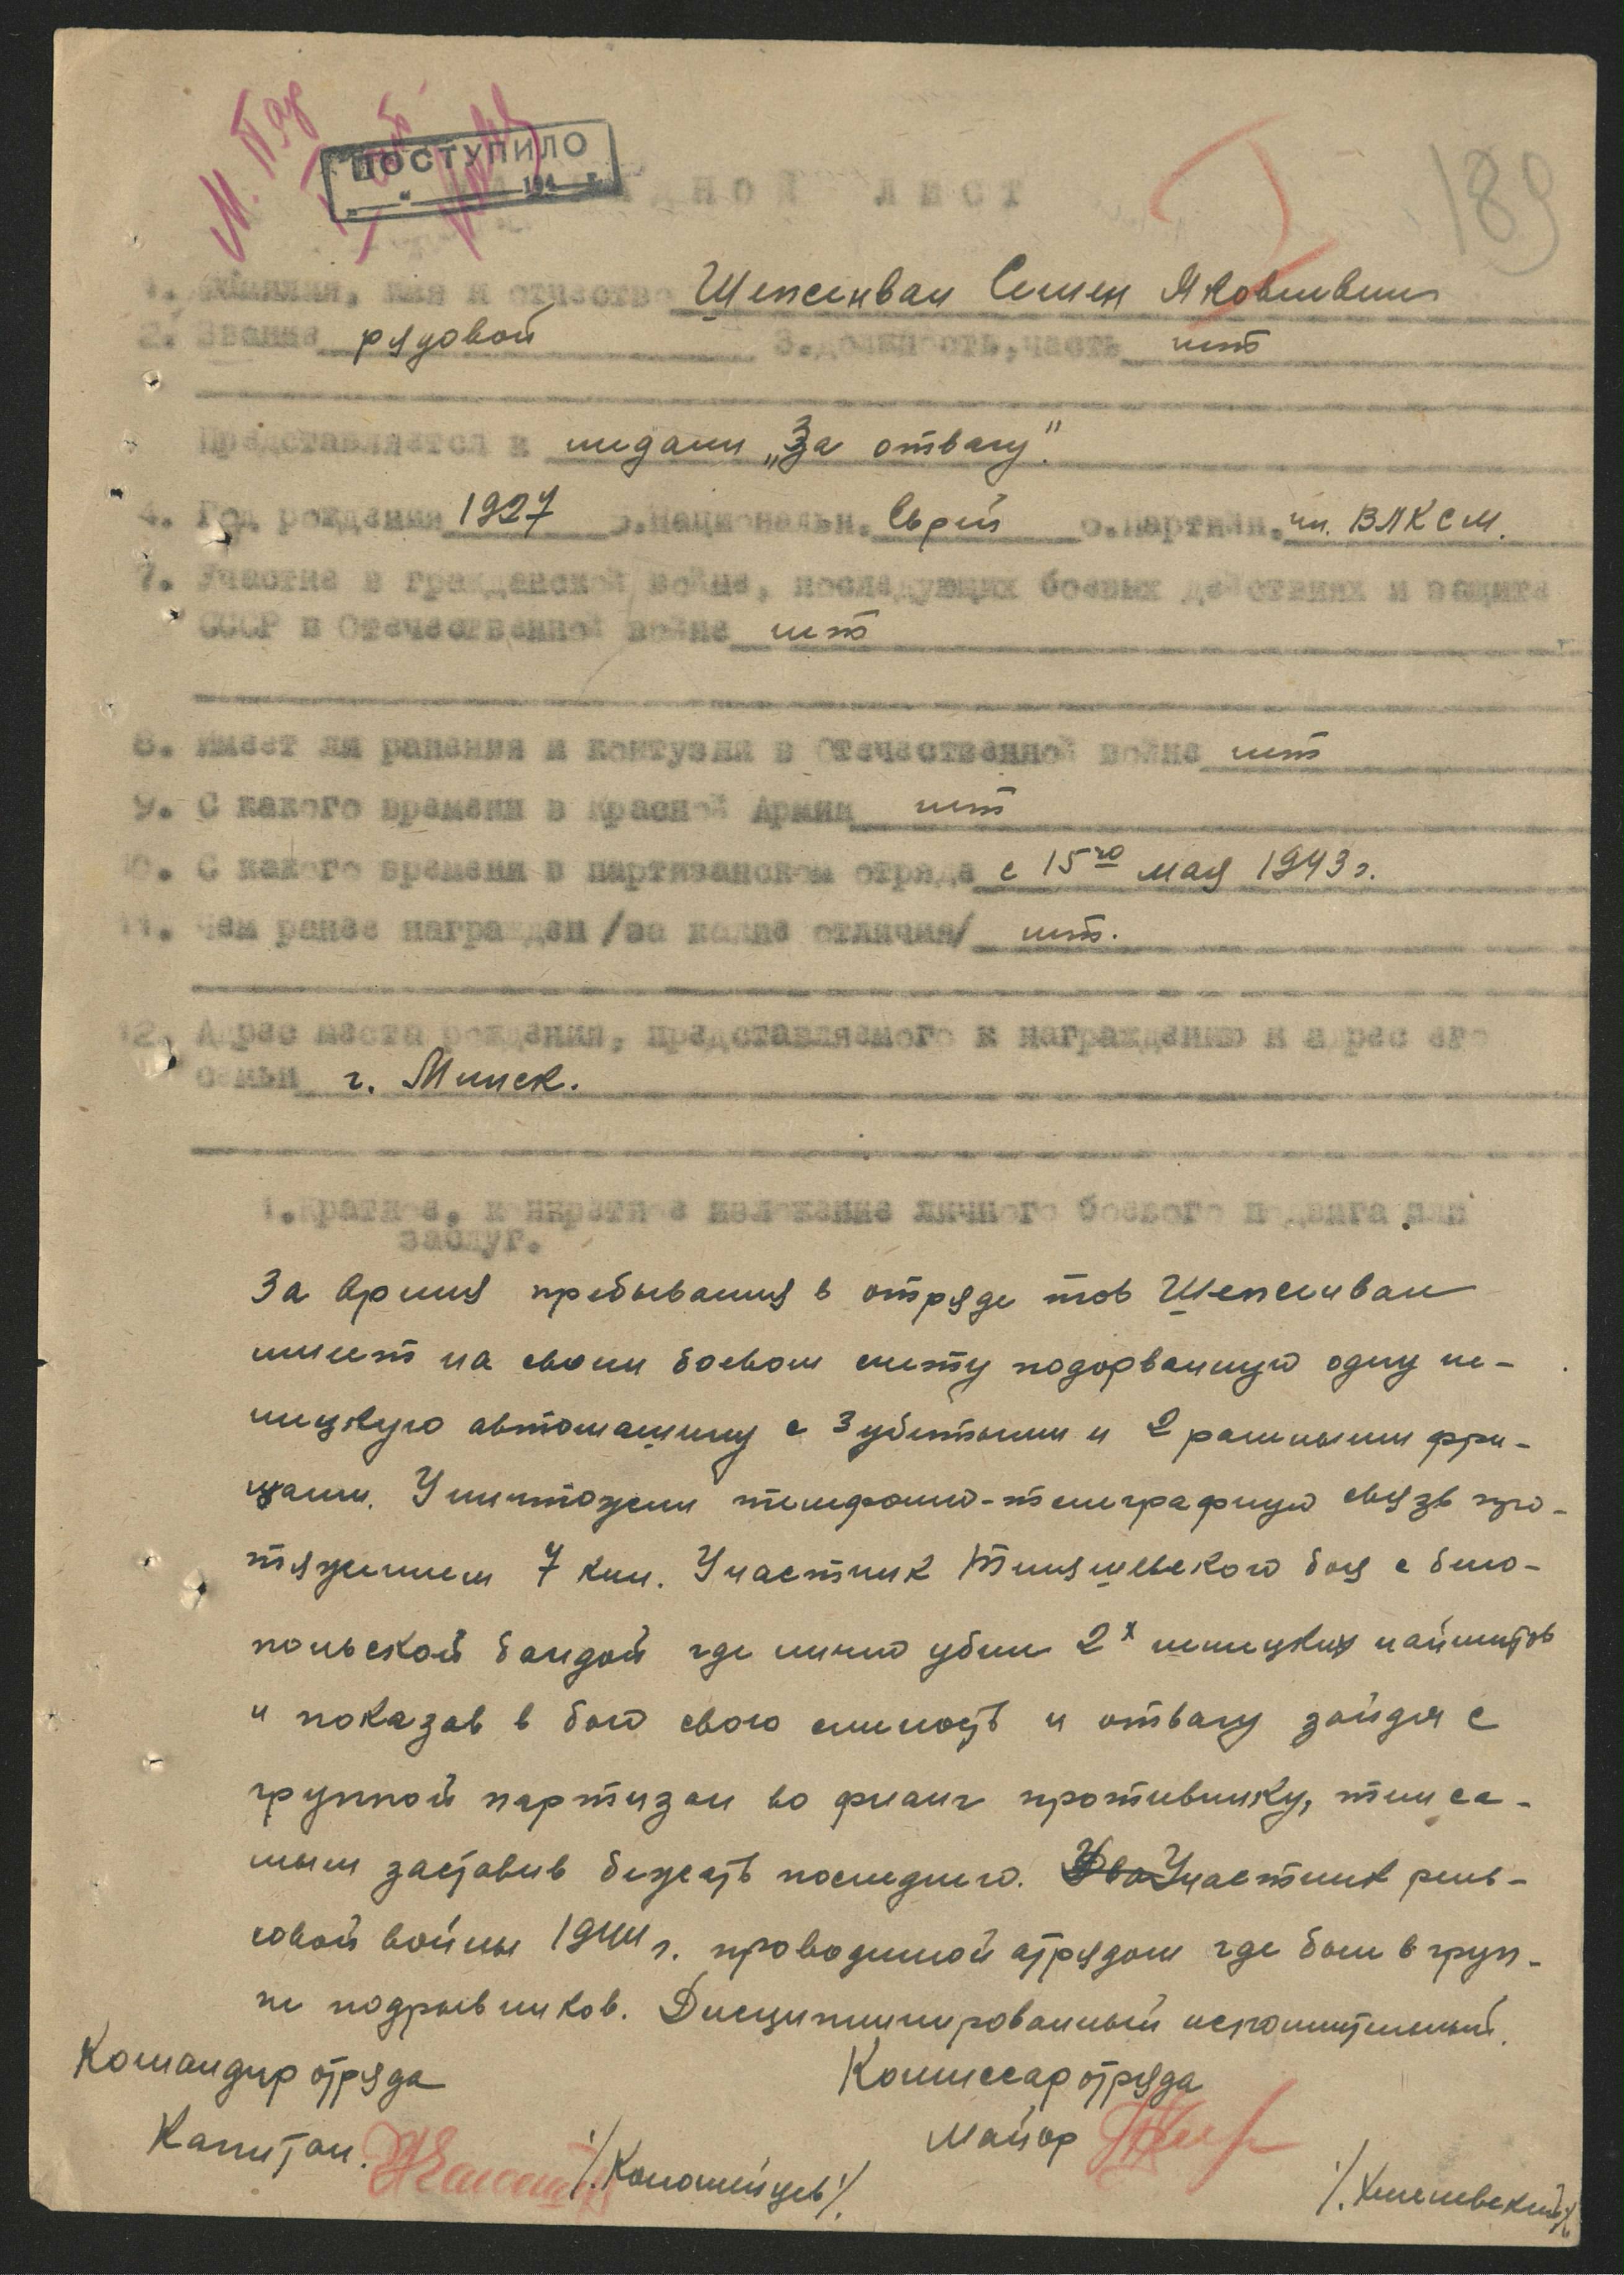 М. Пар
ПОСТУПИЛО
„ “ 194 г.
189
НАГРАДНОЙ ЛИСТ
1. Фамилия, имя и отчество Шепсенван Семен Яковлевич
2. Звание рядовой 3. должность, часть нет
Представляется к медали „За отвагу“.
4. Год рождения 1927 5. Национальн. Еврей 6. Партийн. чл. ВЛКСМ.
7. Участие в гражданской войне, последующих боевых действиях и защите
СССР в Отечественной войне нет
8. Имеет ли ранения и контузии в Отечественной войне нет
9. С какого времени в Красной Армии нет
10. С какого времени в партизанском отряде с 15го мая 1943 г.
11. Чем ранее награжден /за какие отличия/ нет.
12. Адрес места рождения, представляемого к награждению и адрес его
семьи г. Минск.
1. Краткое, конкретное изложение личного боевого подвига или
заслуг.
За время пребывания в отряде тов Шепсенван
имеет на своем боевом счету подорванную одну не-
мецкую автомашину с 3 убитыми и 2 ранеными фри-
цами. Уничтожил телефонно-телеграфную связь про-
тяжением 7 клм. Участник боя с бело-
польской бандой где лично убил 2х немецких наймитов
и показав в бою свою смелость и отвагу зайдя с
группой партизан во фланг противнику, тем са-
мым заставив бежать последнего. Участник рель-
совой войны 1944 г. проводимой отрядом где был в груп-
пе подрывников. Дисциплинированный исполнительный.
Командир отряда Комиссар отряда
Капитан. /.Коломейцев/. Майор /.Хмелевский/.